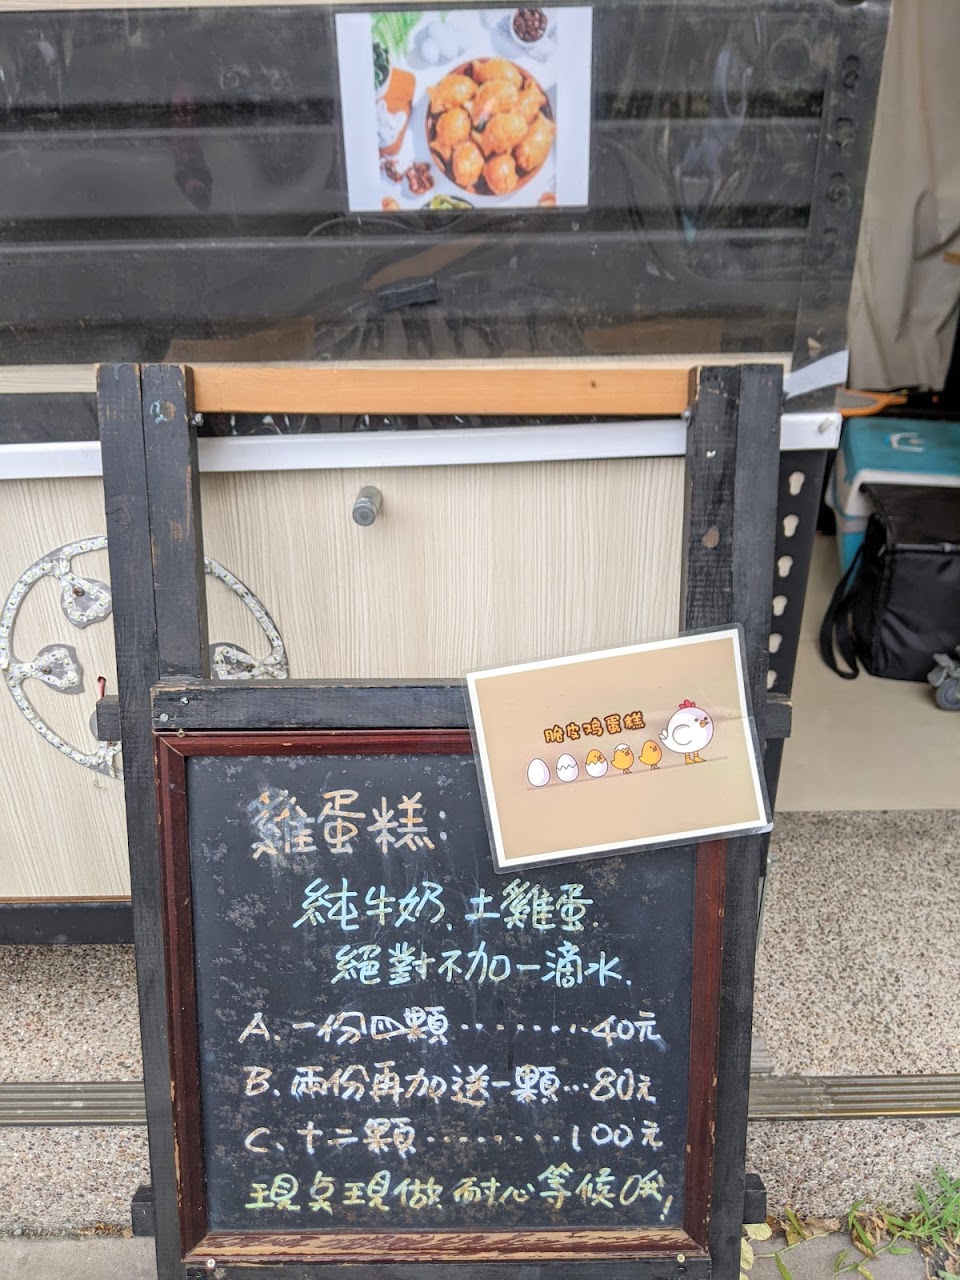 脆皮鸡蛋糕
雞蛋糕:
純牛奶、土雞蛋.
絕對不加一滴水.
A. 一份四顆········40元
B. 兩份再加送一顆···80元
C. 十二顆········100元
現点現做 耐心等候哦!